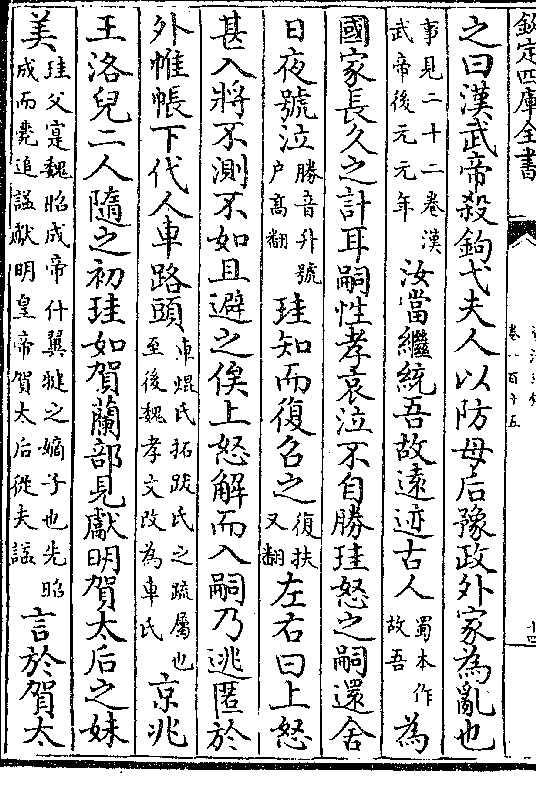 欽定四庫全書
卷一百十五
十四
之曰漢武帝殺鉤弋夫人以防母后豫政外家為亂也
事見二十二卷漢武帝後元元年汝當繼統吾故遠迹古人蜀本作故吾為
國家長久之計耳嗣性孝哀泣不自勝珪怒之嗣還舍
日夜號泣勝音升號户高翻珪知而復召之復扶又翻左右曰上怒
甚入將不測不如且避之俟上怒解而入嗣乃逃匿於
外帷帳下代人車路頭車焜氏拓跋氏之疏屬也至後魏孝文改為車氏京兆
王洛兒二人隨之初珪如賀蘭部見獻明賀太后之妹
美珪父寔魏昭成帝什翼犍之嫡子也先昭成而薨追諡獻明皇帝賀太后從夫諡言於賀太